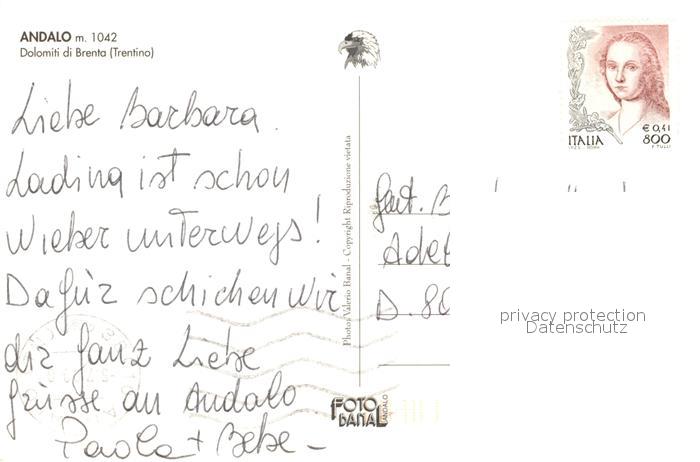 ANDALO m. 1042
Dolomiti di Brenta (Trentino)
Liebe Barbara.
Ladina ist schon
wieber unterwegs!
Dafür schicken wir
dir ganz Liebe
Grüsse an Andalo
Paola + Bebe -
Photo: Valerio Banal - Copyright Riproduzione vietata
FOTO
BANAL
ANDALO
€ 0,41
ITALIA 800
F. TULLI
Adel
D. 80
privacy protection
Datenschutz